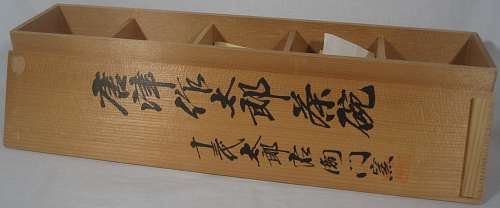 唐津作太郎茶碗
十弐太郎右衛門窯